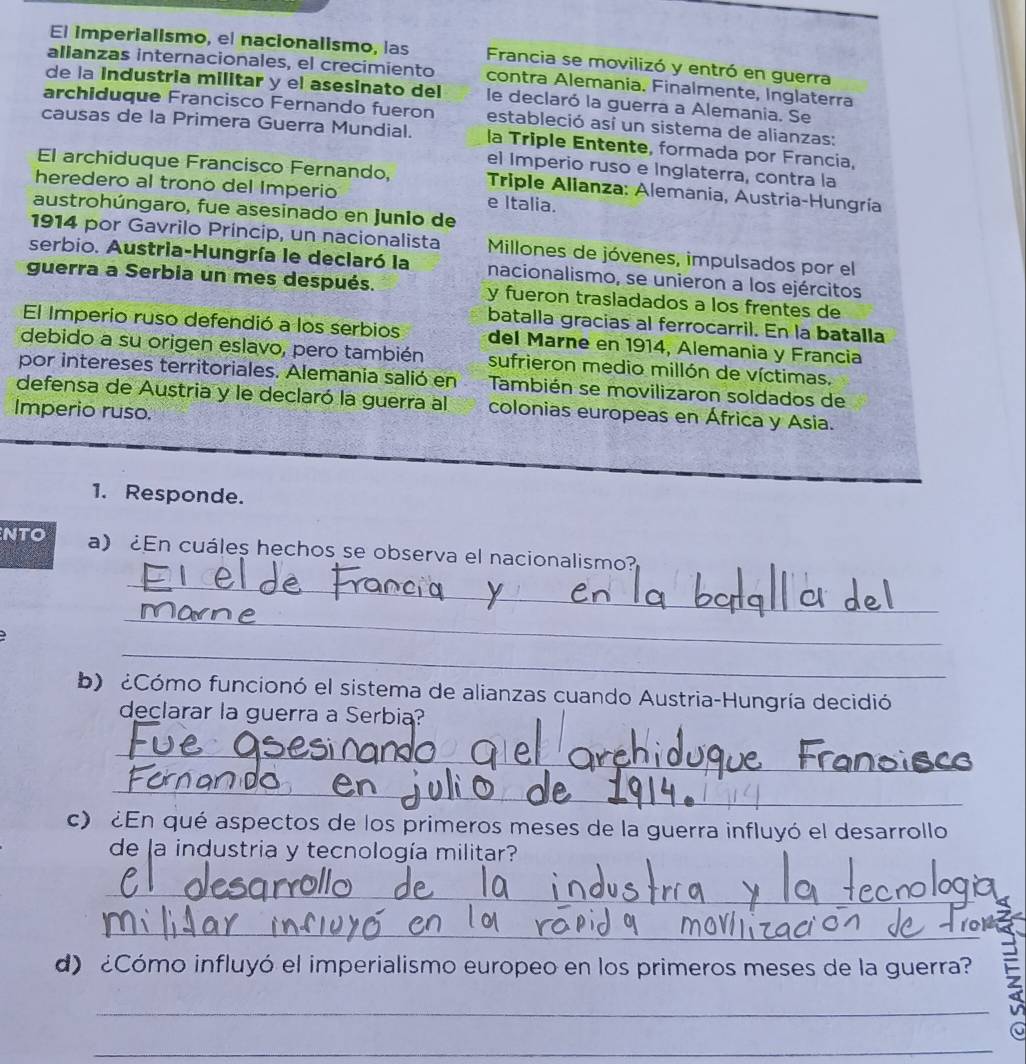 El imperialismo, el nacionalismo, las
alianzas internacionales, el crecimiento
de la industria militar y el asesinato del
archiduque Francisco Fernando fueron
causas de la Primera Guerra Mundial.
El archiduque Francisco Fernando,
heredero al trono del Imperio
austrohúngaro, fue asesinado en junio de
1914 por Gavrilo Princip, un nacionalista
serbio. Austria-Hungría le declaró la
guerra a Serbia un mes después.
El Imperio ruso defendió a los serbios
debido a su origen eslavo, pero también
por intereses territoriales. Alemania salió en
defensa de Austria y le declaró la guerra al
Imperio ruso.
Francia se movilizó y entró en guerra
contra Alemania. Finalmente, Inglaterra
le declaró la guerra a Alemania. Se
estableció así un sistema de alianzas:
la Triple Entente, formada por Francia,
el Imperio ruso e Inglaterra, contra la
Triple Alianza: Alemania, Austria-Hungría
e Italia.
Millones de jóvenes, impulsados por el
nacionalismo, se unieron a los ejércitos
y fueron trasladados a los frentes de
batalla gracias al ferrocarril. En la batalla
del Marne en 1914, Alemania y Francia
sufrieron medio millón de víctimas.
También se movilizaron soldados de
colonias europeas en África y Asia.
1. Responde.
ENTO
a) ¿En cuáles hechos se observa el nacionalismo?
El el de Francia y en la batalla del
marne
b) ¿Cómo funcionó el sistema de alianzas cuando Austria-Hungría decidió
declarar la guerra a Serbia?
Fue asesinando al el archiduque Francisco
Fernando en julio de 1914.
c) ¿En qué aspectos de los primeros meses de la guerra influyó el desarrollo
de la industria y tecnología militar?
el desarrollo de la industria y la tecnologia
militar influyó en la rápida movilización de
d) ¿Cómo influyó el imperialismo europeo en los primeros meses de la guerra?
© SANTILLANA